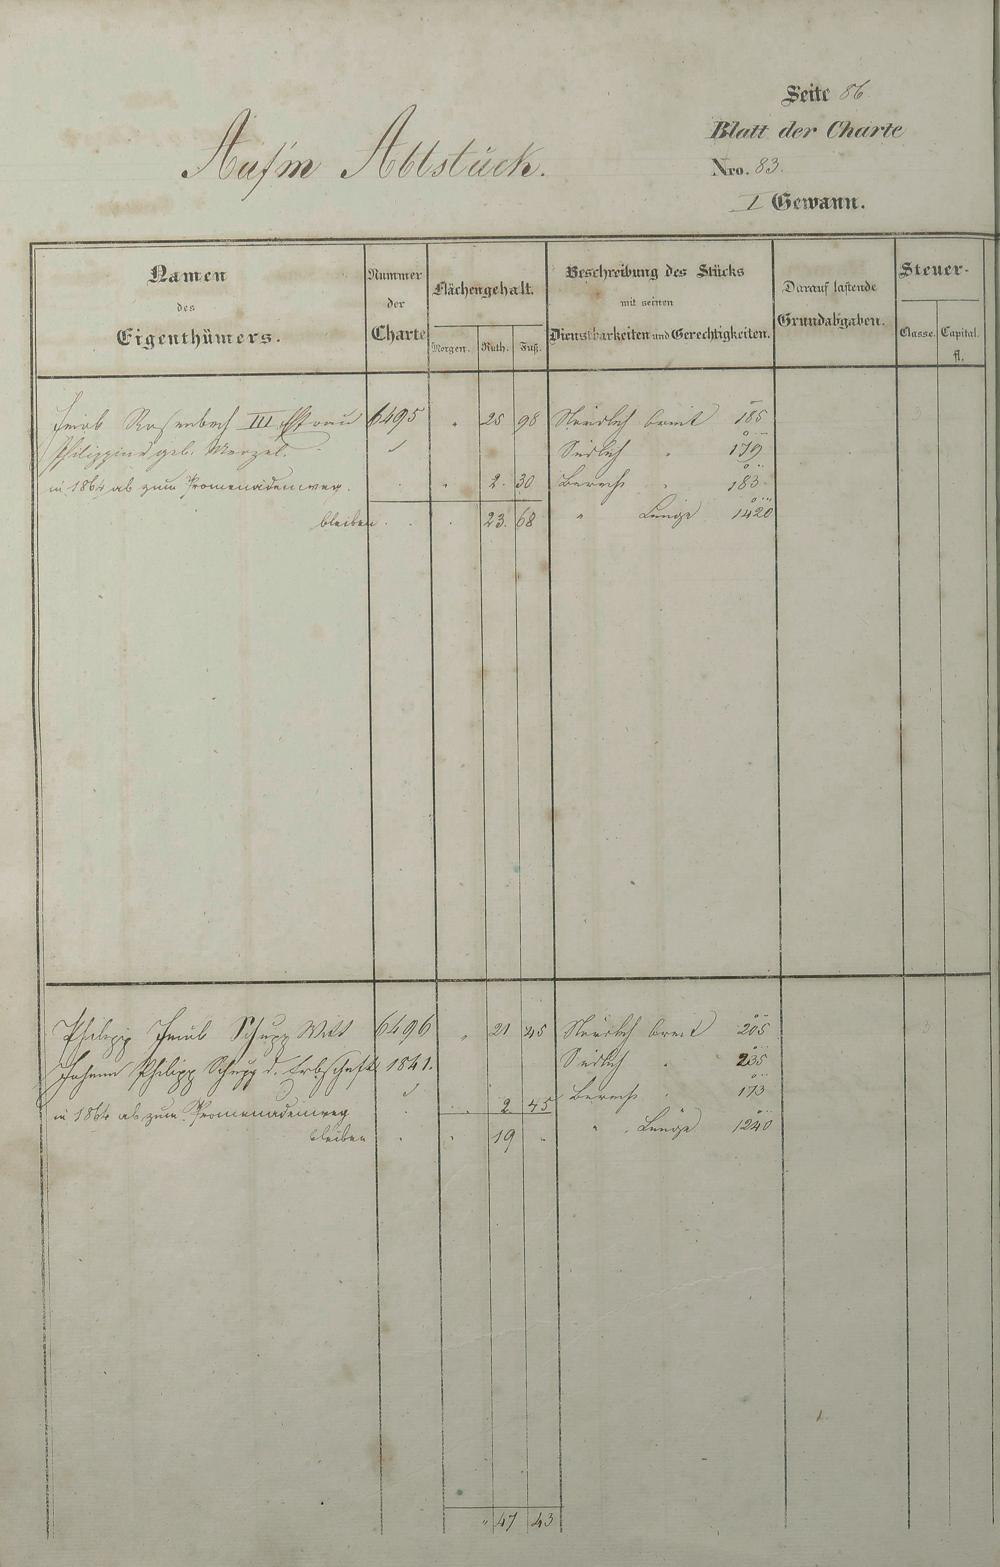 Seite 86
Blatt der Charte
Nro. 83.
I Gewann.
Auf'm Abtstück.
Namen des Eigenthümers.
Nummer der Charte
Flächengehalt.
Morgen. Ruth. Fuß.
Beschreibung des Stücks mit seinen Dienstbarkeiten und Gerechtigkeiten.
Darauf lastende Grundabgaben.
Steuer-
Classe. Capital. fl.
Jacob Rosenbech III Ehefrau 6495 " 25 98 Nördlich breit 185
Philippine geb. Menzel. Südlich " 179
in 1864 ab zum Promenadenweg. " 2. 30 Berech " 183
bleiben . . 23. 68 " Länge 1420
Philipp Jacob Schupp Witt 6496 " 21 45 Nördlich breit 205
Johann Philipp Schupp d. Erbschaft 1841. Südlich " 235
in 1864 ab zum Promenadenweg . " 2 45 Berech " 173
bleiben . " 19 " " Länge 1240
" 47 43